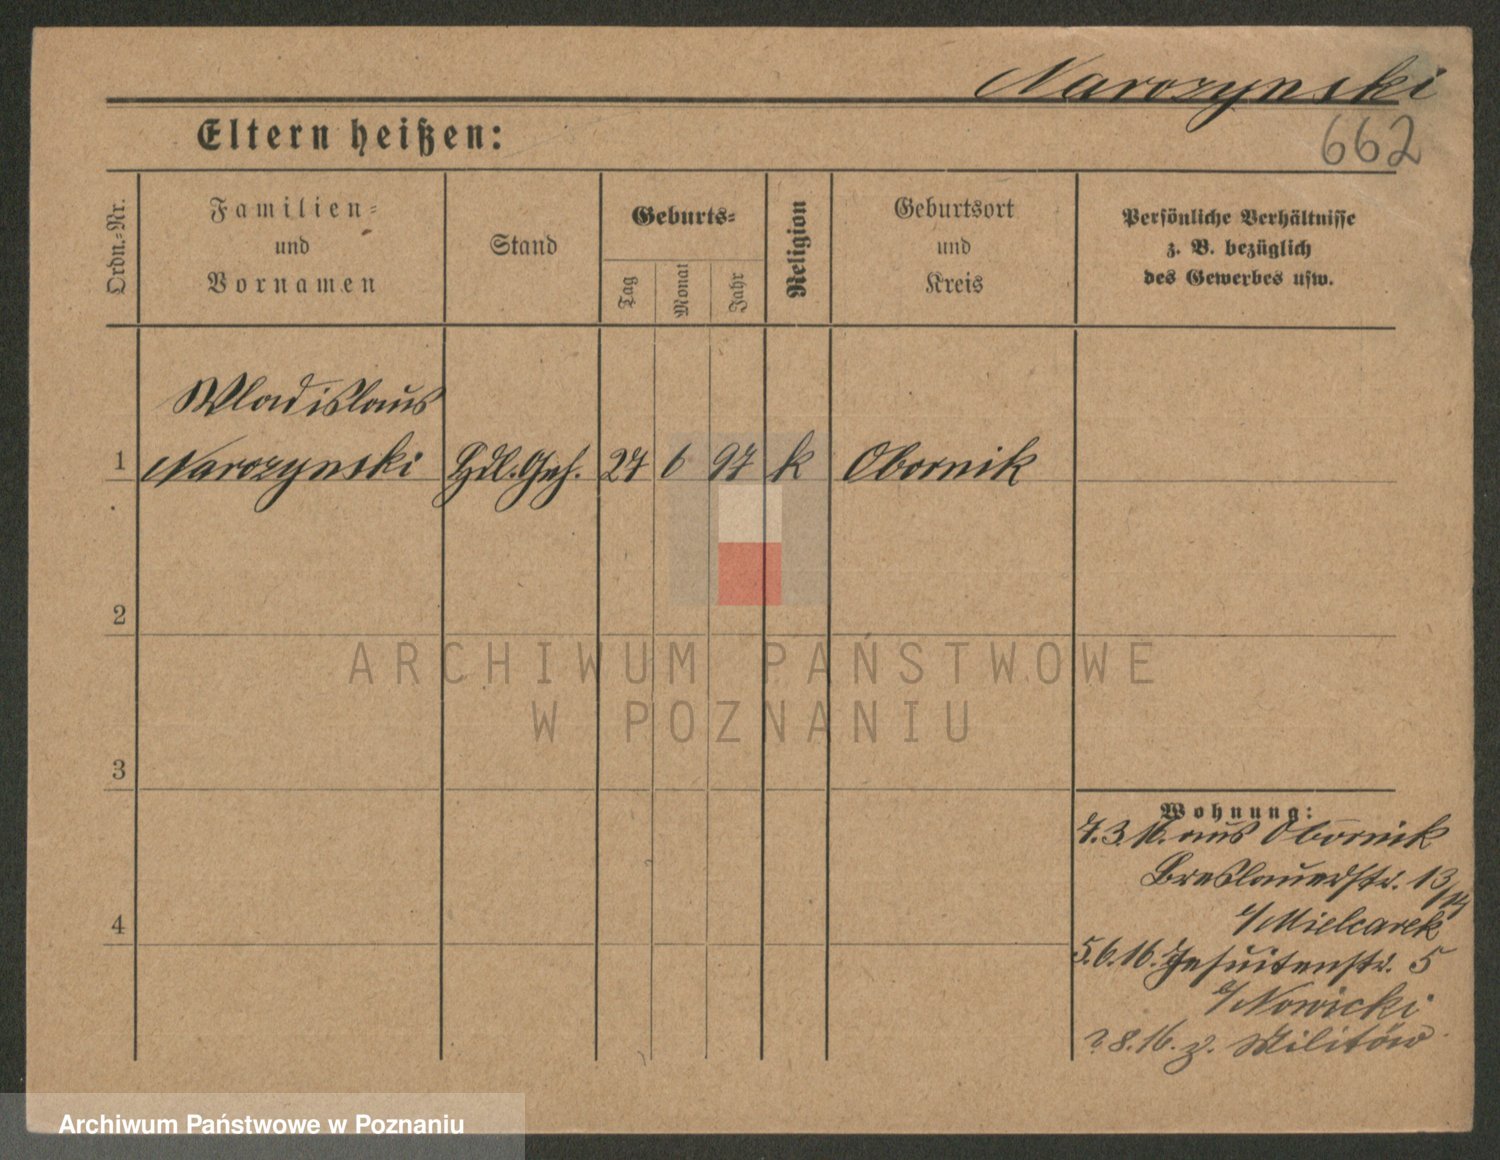 Narozynski
Eltern heißen:
662
Ordn.-Nr.
Familien-
und
Vornamen
Stand
Geburts-
Tag
Monat
Jahr
Religion
Geburtsort
und
Kreis
Persönliche Verhältnisse
z. B. bezüglich
des Gewerbes usw.
Wladislaus
1 Narozynski Hdl. Geh. 27 6 97 k Obornik
2
ARCHIWUM PAŃSTWOWE
W POZNANIU
3
Wohnung:
7.3.16. aus Obornik
Breslauerstr. 13
b/Mielcarek
4
5.6.16. Jesuitenstr. 5
b/Nowicki
8.16. z. Militär
Archiwum Państwowe w Poznaniu